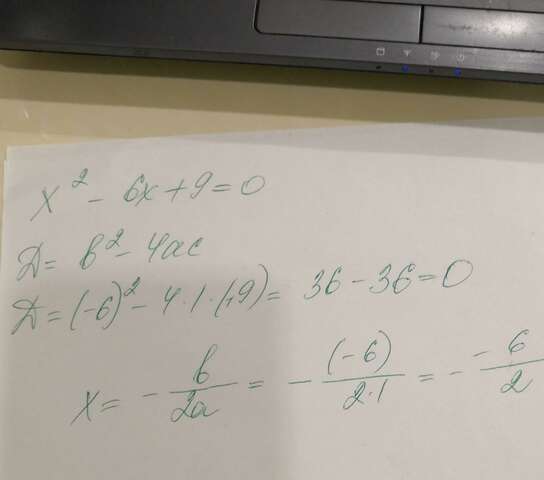 x² - 6x + 9 = 0
Д = b² - 4ac
Д = (-6)² - 4·1·(+9) = 36 - 36 = 0
x = - b/2a = - (-6)/2·1 = - -6/2